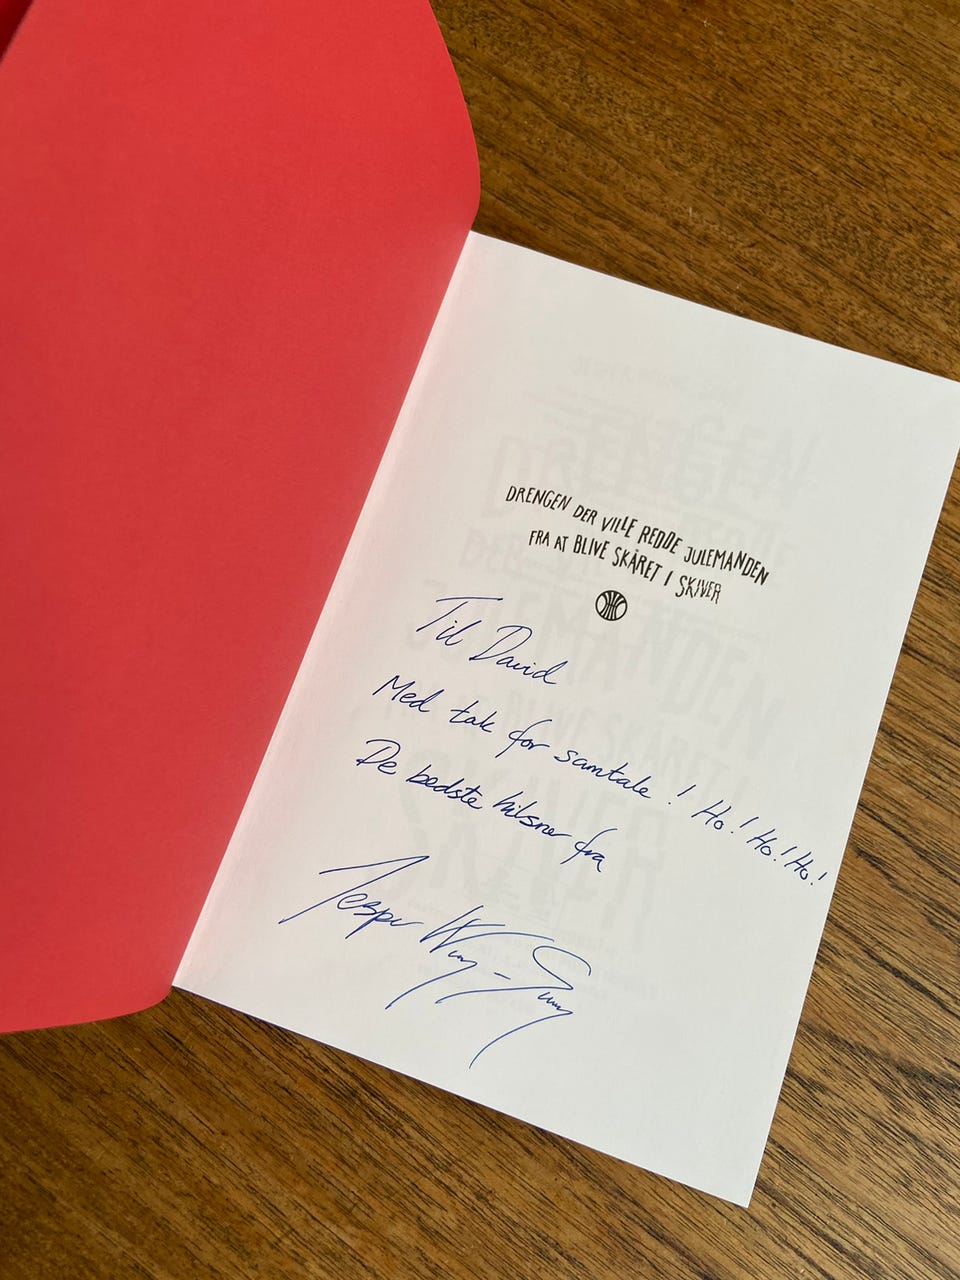 DRENGEN DER VILLE REDDE JULEMANDEN
FRA AT BLIVE SKÅRET I SKIVER
Til David
Med tak for samtale! Ho! Ho! Ho!
De bedste hilsner fra
Jesper Wung-Sung